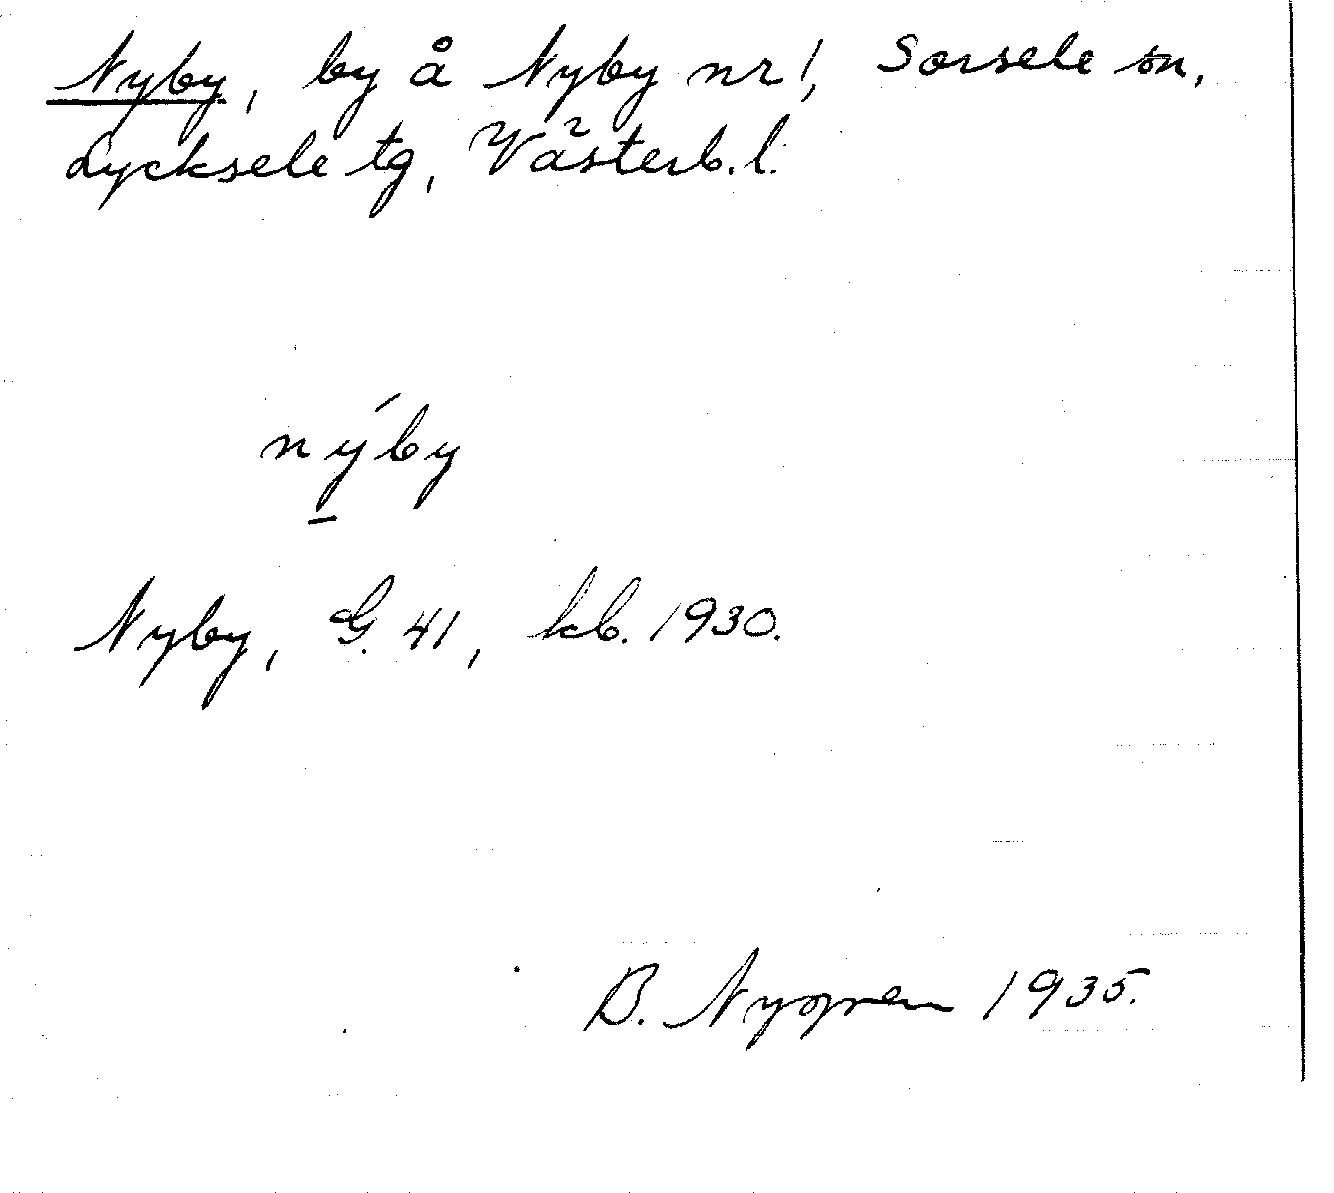 Nyby, by å Nyby nr 1, Sorsele sn,
Lycksele tg, Västerb. l.
nýby
Nyby, G. 41, kb. 1930.
B. Nygren 1935.